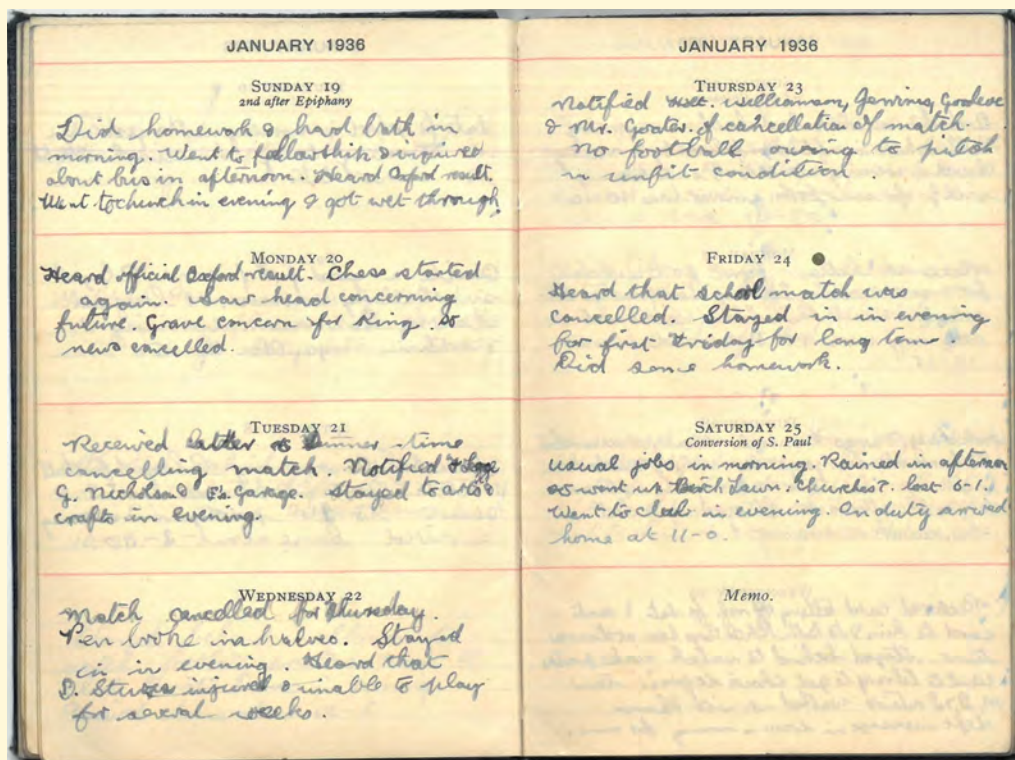 JANUARY 1936
SUNDAY 19
2nd after Epiphany
Did homework & had bath in
morning. Went to fellowship & inquired
about bus in afternoon. Heard Oxford result.
Went to church in evening & got wet through
MONDAY 20
Heard official Oxford result. Chess started
again. Saw head concerning
future. Grave concern for King. So
news cancelled.
TUESDAY 21
Received letter dinner time
cancelling match. Notified
G. Nicholson & Garage. Stayed to arts &
crafts in evening.
WEDNESDAY 22
Match cancelled for Thursday.
Pen broke in halves. Stayed
in in evening. Heard that
D. injured & unable to play
for several weeks.
JANUARY 1936
THURSDAY 23
Notified Williamson,
& Mr. Goater of cancellation of match.
No football owing to pitch
in unfit condition
FRIDAY 24
Heard that school match was
cancelled. Stayed in in evening
for first Friday for long time.
Did some homework.
SATURDAY 25
Conversion of S. Paul
usual jobs in morning. Rained in afternoon
so went Lawn. lost 6-1.
Went to club in evening. On duty arrived
home at 11-0.
Memo.